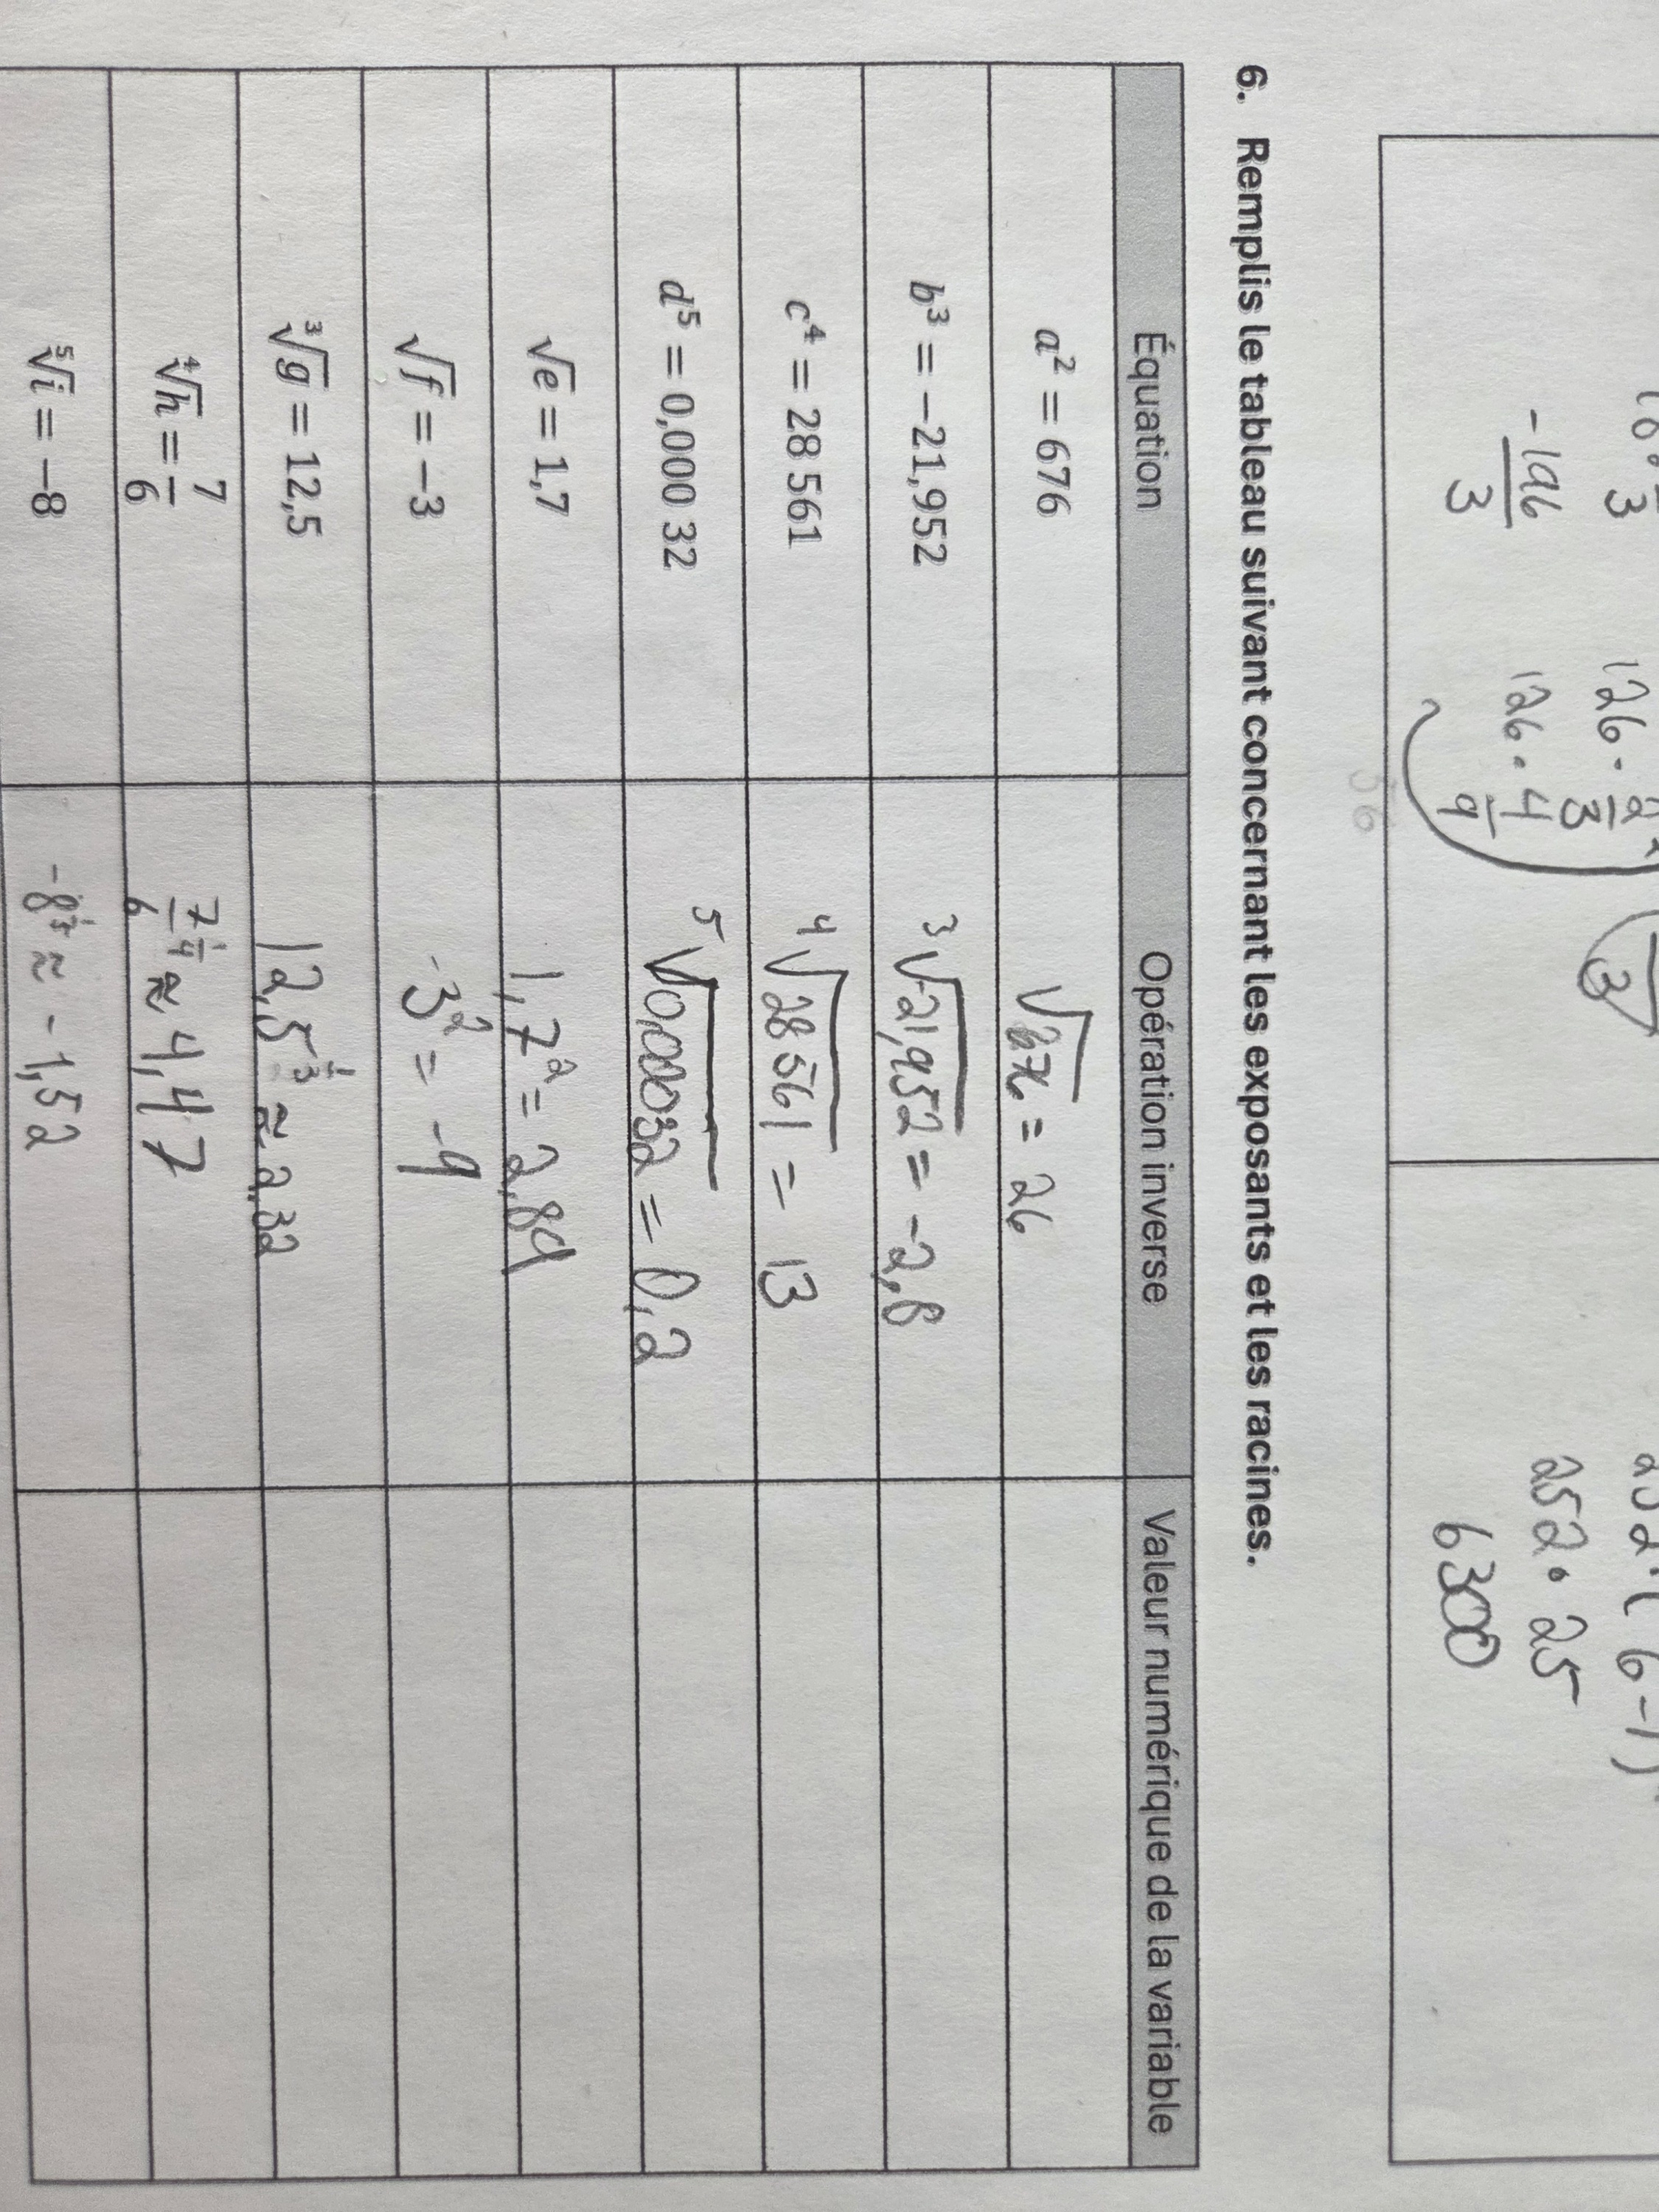 3
-196
3
126 ·
3
126 · 4
9
3
252 · 25
6300
6. Remplis le tableau suivant concernant les exposants et les racines.
Équation Opération inverse Valeur numérique de la variable
a² = 676 √676 = 26
b³ = −21,952 ³√-21,952 = -2,8
c⁴ = 28 561 ⁴√28561 = 13
d⁵ = 0,000 32 ⁵√0,00032 = 0,2
√e = 1,7 1,7² = 2,89
√f = −3 -3² = -9
³√g = 12,5 12,5^1/3 ≈ 2,32
⁴√h = 7/6 7/6^1/4 ≈ 4,47
⁵√i = −8 -8^1/5 ≈ -1,52